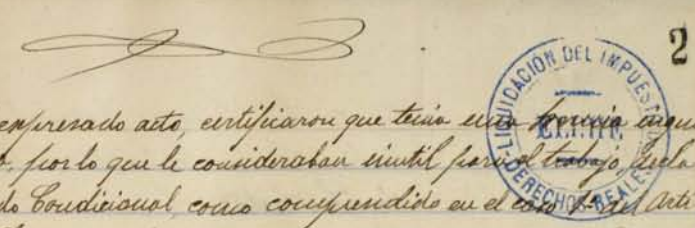 2
LIQUIDACIÓN DEL IMPUESTO
DERECHOS REALES
expresado acto, certificaron que tenia una hernia ingui
por lo que le consideraban inutil para el trabajo, decla
do Condicional, como comprendido en el caso del Arti